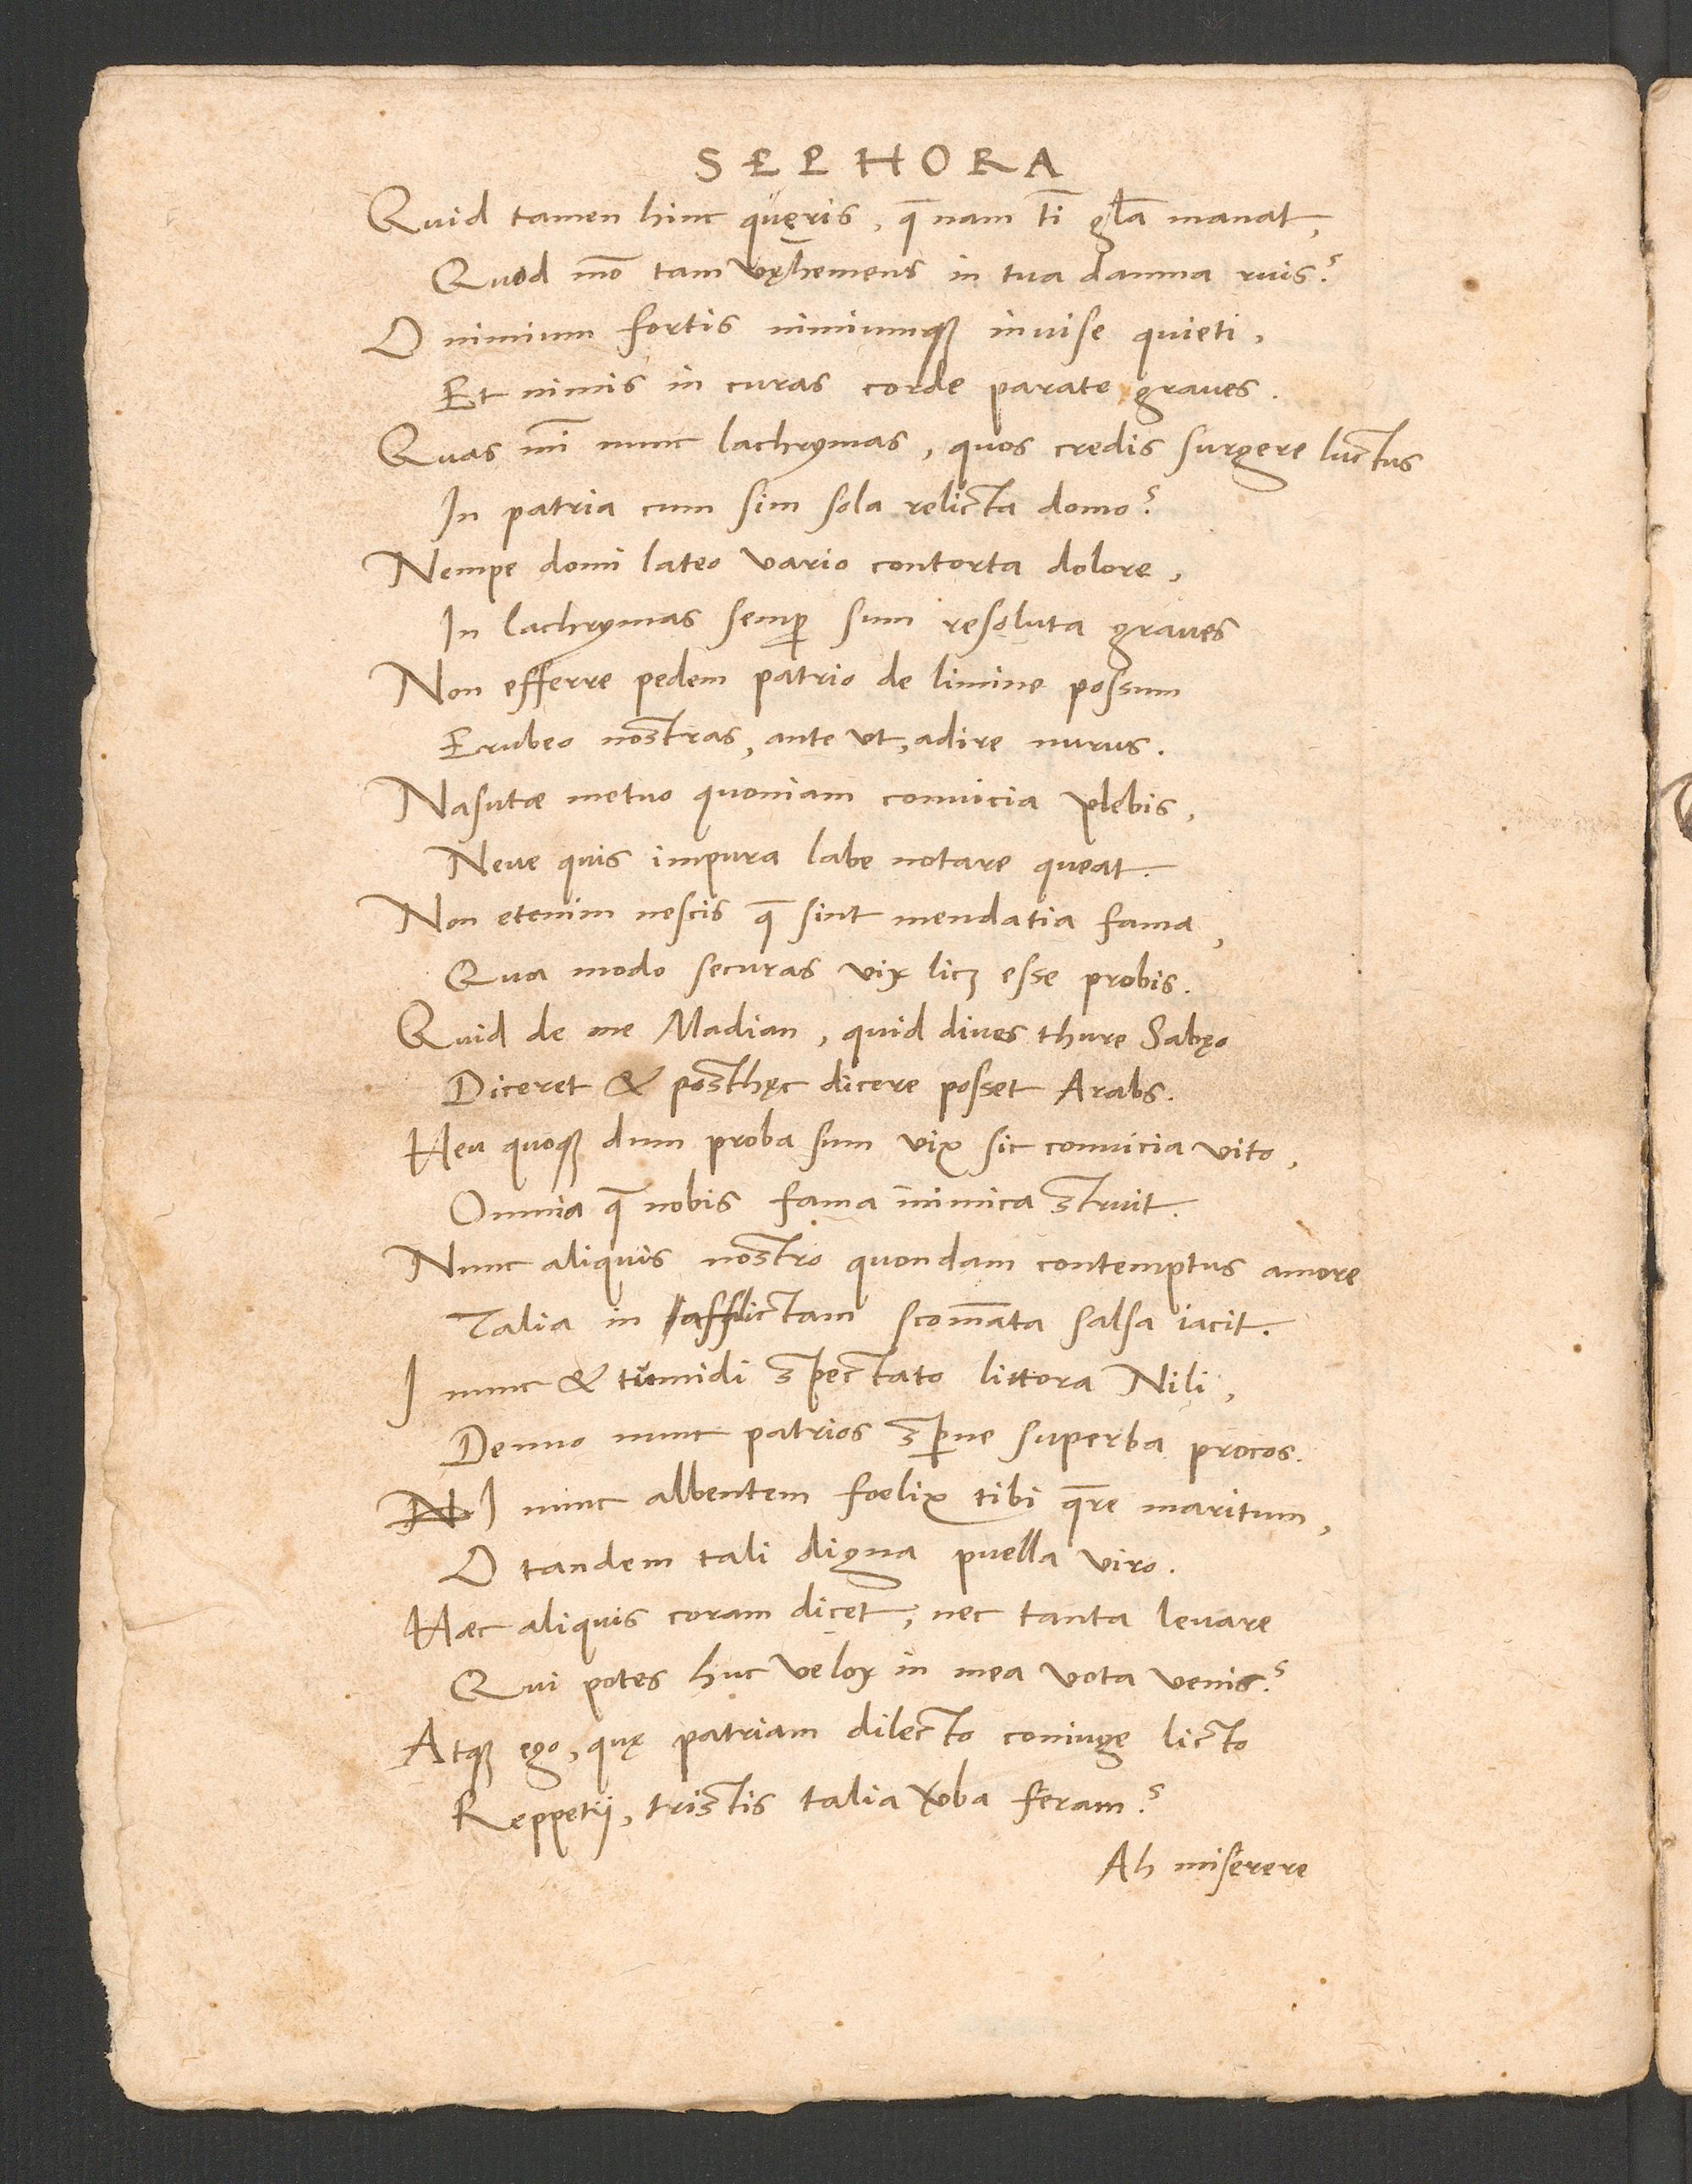 SEPHORA
Quid tamen hinc quęris, q̄ nam tī gl̄a manat,
Quod mō tam vęhemens in tua damna ruis?
O nimium fortis nimiumqꝫ inuise quieti,
Et nimis in curas corde parate graues.
Quas mī nunc lachrymas, quos credis surgere luctus
In patria cum sim sola relicta domo?
Nempe domi lateo vario contorta dolore,
In lachrymas semꝑ sum resoluta graues
Non efferre pedem patrio de limine possum
Erubeo nostras, ante ut, adire nurus.
Nasutæ metuo quoniam conuicia plebis,
Neue quis impura labe notare queat.
Non etenim nescis q̄ sint mendatia fama,
Qua modo securas vix licꝫ esse probis.
Quid de me Madian, quid diues thure Sabęo
Diceret & posthęc dicere posset Arabs.
Heu quoqꝫ dum proba sum vix sic conuicia vito,
Omnia q̄ nobis fama inimica struit.
Nunc aliquis nostro quondam contemptus amore
Talia in afflictam scom̄ata salsa iacit.
I nunc & tumidi spectato littora Nili,
Denuo nunc patrios sꝑne superba procos.
I nunc albentem foelix tibi q̄re maritum,
O tandem tali digna puella viro.
Hæc aliquis coram dicet, nec tanta leuare
Qui potes huc velox in mea vota venis?
Atqꝫ ego, quę patriam dilecto coniuge licto
Reppetij, tristis talia v̄ba feram?
Ah miserere